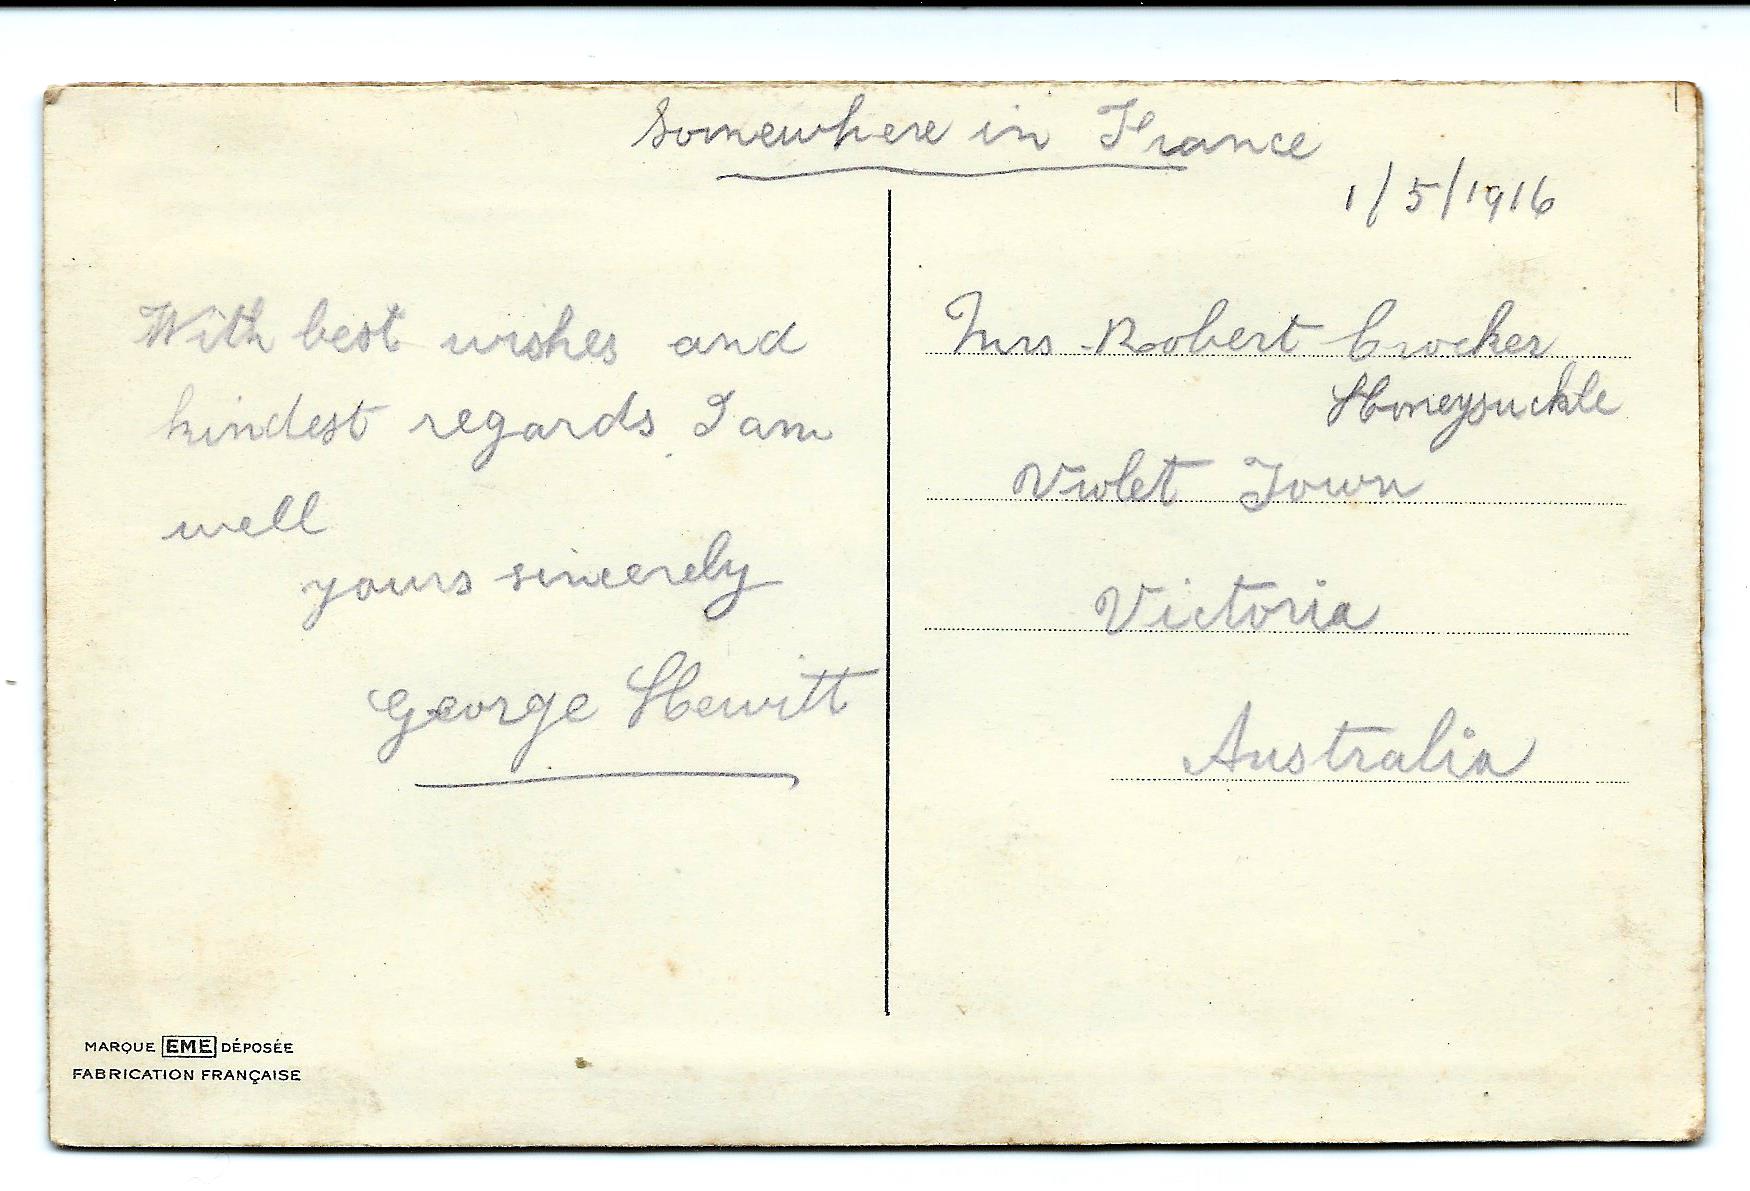 Somewhere in France
1/5/1916
With best wishes and
kindest regards I am
well
yours sincerely
George Hewitt
Mrs Robert Crocker
Honeysuckle
Violet Town
Victoria
Australia
MARQUE EME DÉPOSÉE
FABRICATION FRANÇAISE